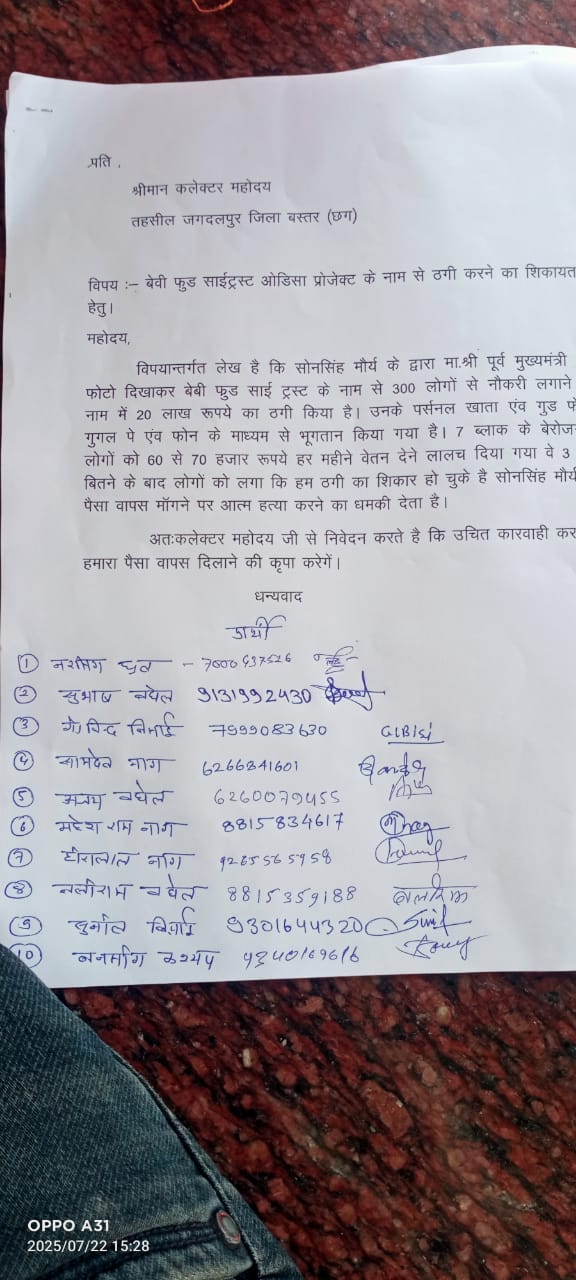 प्रति ,
श्रीमान कलेक्टर महोदय
तहसील जगदलपुर जिला बस्तर (छग)
विषय :– बेवी फुड साईट्रस्ट ओडिसा प्रोजेक्ट के नाम से ठगी करने का शिकायत
हेतु।
महोदय,
विषयान्तर्गत लेख है कि सोनसिंह मौर्य के द्वारा मा.श्री पूर्व मुख्यमंत्री
फोटो दिखाकर बेबी फुड साई ट्रस्ट के नाम से 300 लोगों से नौकरी लगाने
नाम में 20 लाख रूपये का ठगी किया है। उनके पर्सनल खाता एंव गुड
गुगल पे एंव फोन के माध्यम से भूगतान किया गया है। 7 ब्लाक के
लोगों को 60 से 70 हजार रूपये हर महीने वेतन देने लालच दिया गया वे 3
बितने के बाद लोगों को लगा कि हम ठगी का शिकार हो चुके है सोनसिंह मौर्य
पैसा वापस मॉगने पर आत्म हत्या करने का धमकी देता है।
अतःकलेक्टर महोदय जी से निवेदन करते है कि उचित कारवाही कर
हमारा पैसा वापस दिलाने की कृपा करेगें।
धन्यवाद
प्रार्थी
1 ध्रुव –
2 सुभाष बघेल 9131992430
3 7999083630
4 नाग 6266341601
5 बघेल 6260079455
6 महेश राम नाग 8815834617
7 हीरालाल नाग
8 बलीराम बघेल 8815359188 बलीराम
9 9301644320 Sunil
10 कश्यप
OPPO A31
2025/07/22 15:28